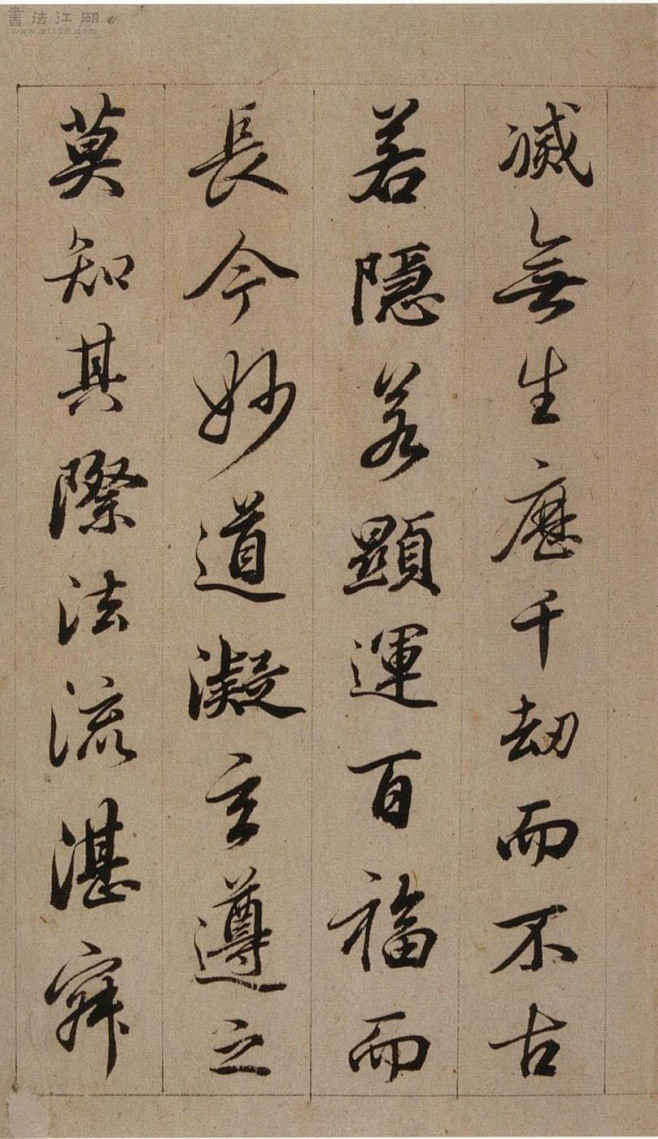 滅無生歷千劫而不古
若隱若顯運百福而
長今妙道凝玄遵之
莫知其際法流湛寂
書法江湖